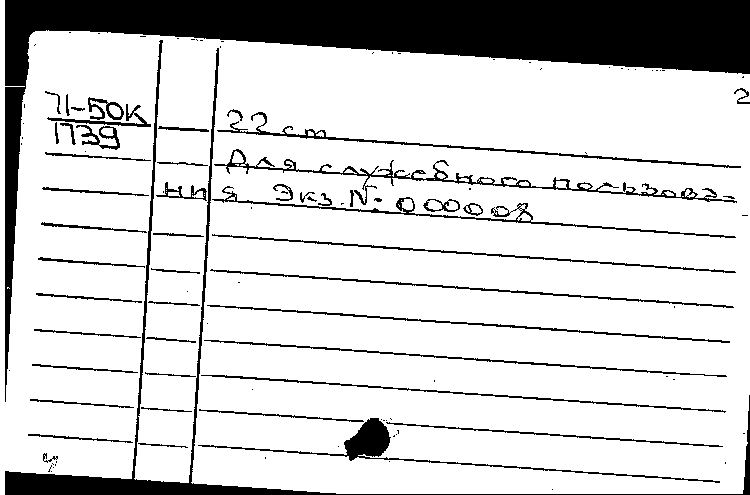 2
71-50К
1739
22 cm
Для служебного пользова=
ния Экз. №: 000008